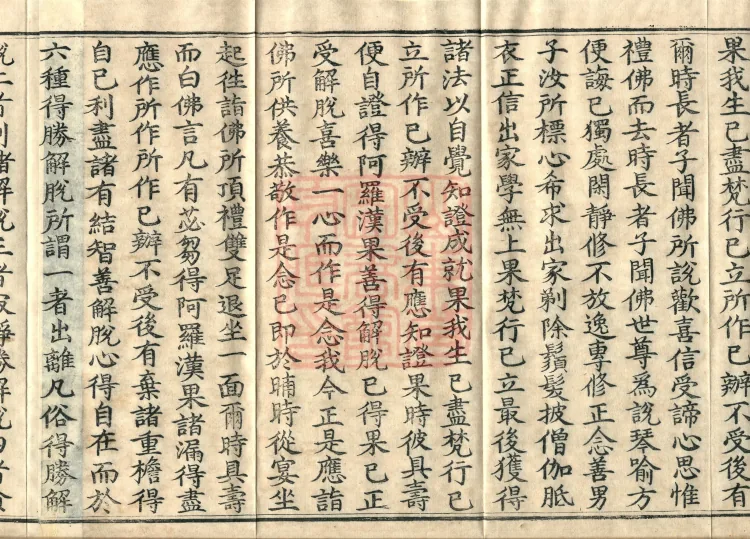 果我生已盡梵行已立所作已辦不受後有
爾時長者子聞佛所說歡喜信受諦心思惟
禮佛而去時長者子聞佛世尊為說琴喻方
便誨已獨處閑靜修不放逸專修正念善男
子汝所標心希求出家剃除鬚髮披僧伽胝
衣正信出家學無上果梵行已立最後獲得
諸法以自覺知證成就果我生已盡梵行已
立所作已辦不受後有應知證果時彼具壽
便自證得阿羅漢果善得解脫已得果已正
受解脫喜樂一心而作是念我今正是應詣
佛所供養恭敬作是念已即於晡時從宴坐
起往詣佛所頂禮雙足退坐一面爾時具壽
而白佛言凡有苾芻得阿羅漢果諸漏得盡
應作所作所作已辦不受後有棄諸重擔得
自己利盡諸有結智善解脫心得自在而於
六種得勝解脫所謂一者出離凡俗得勝解
脫二者別諸解脫三者寂靜勝解脫四者貪